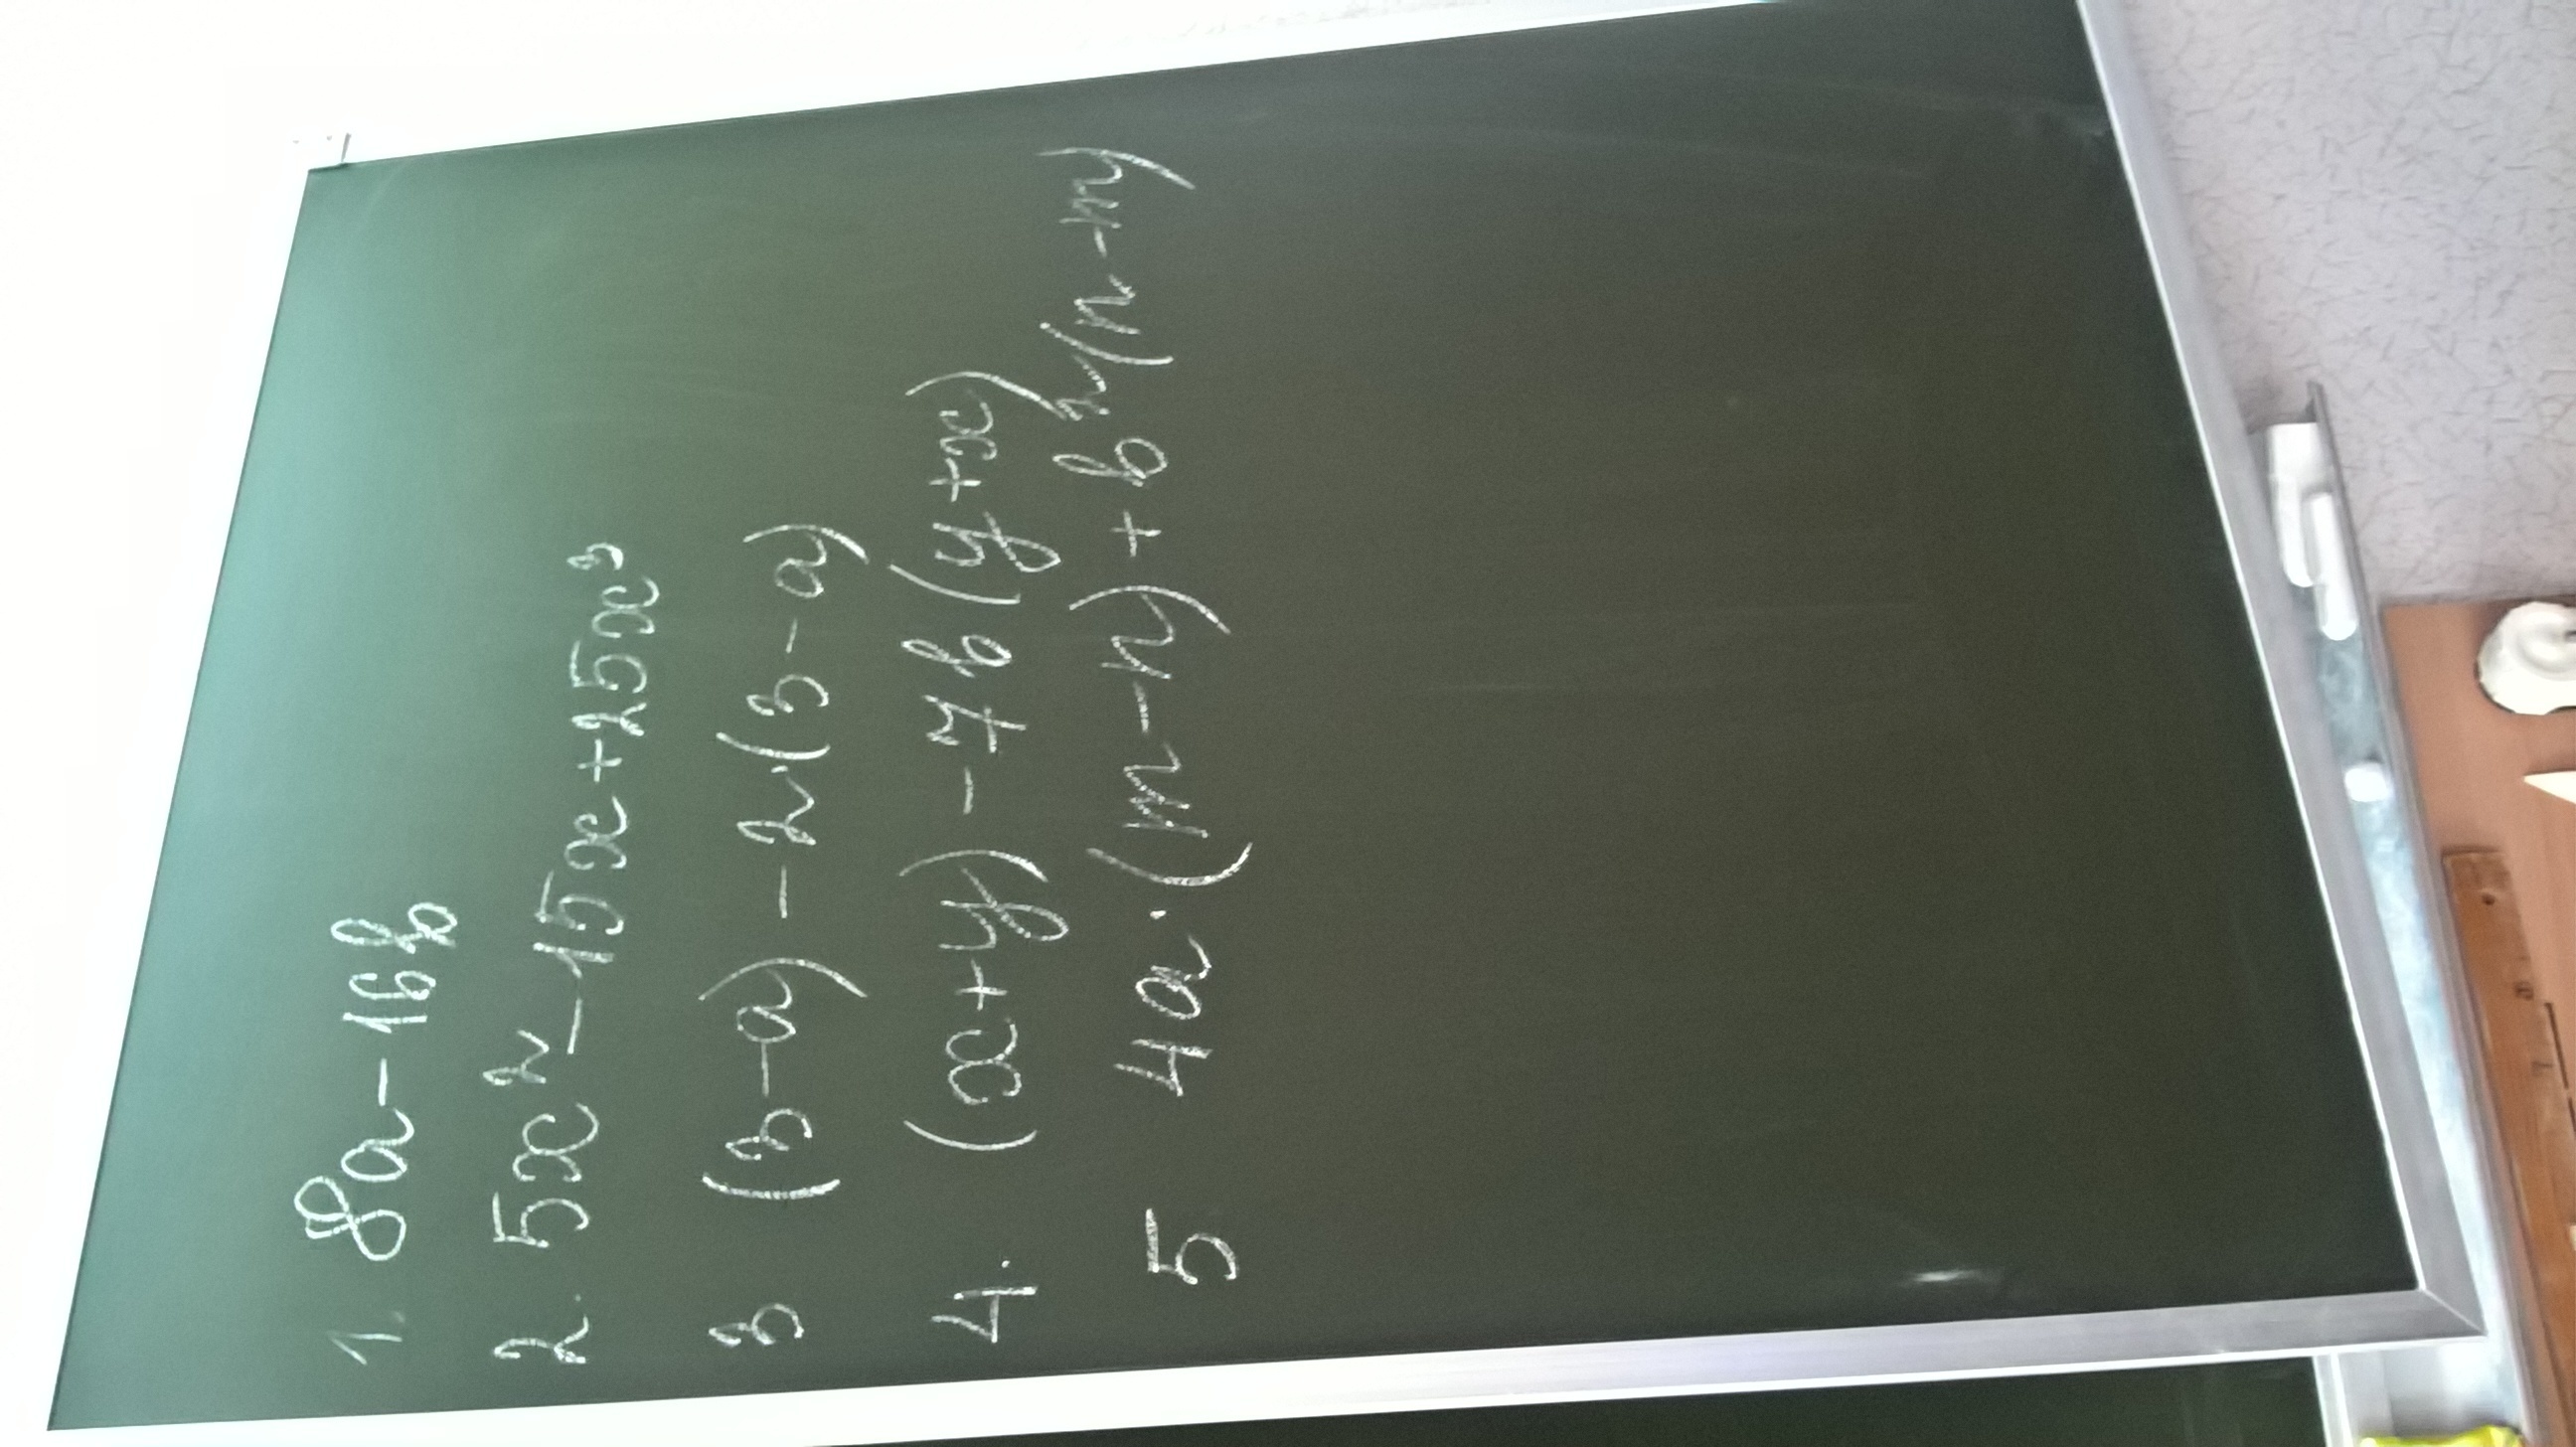 1. 8a-16b
2. 5x²-15x+25x³
3 (3-a)-2(3-a)
4. (x+y)-7b(y+x)
5 4a·(m-n)+b²(n-m)